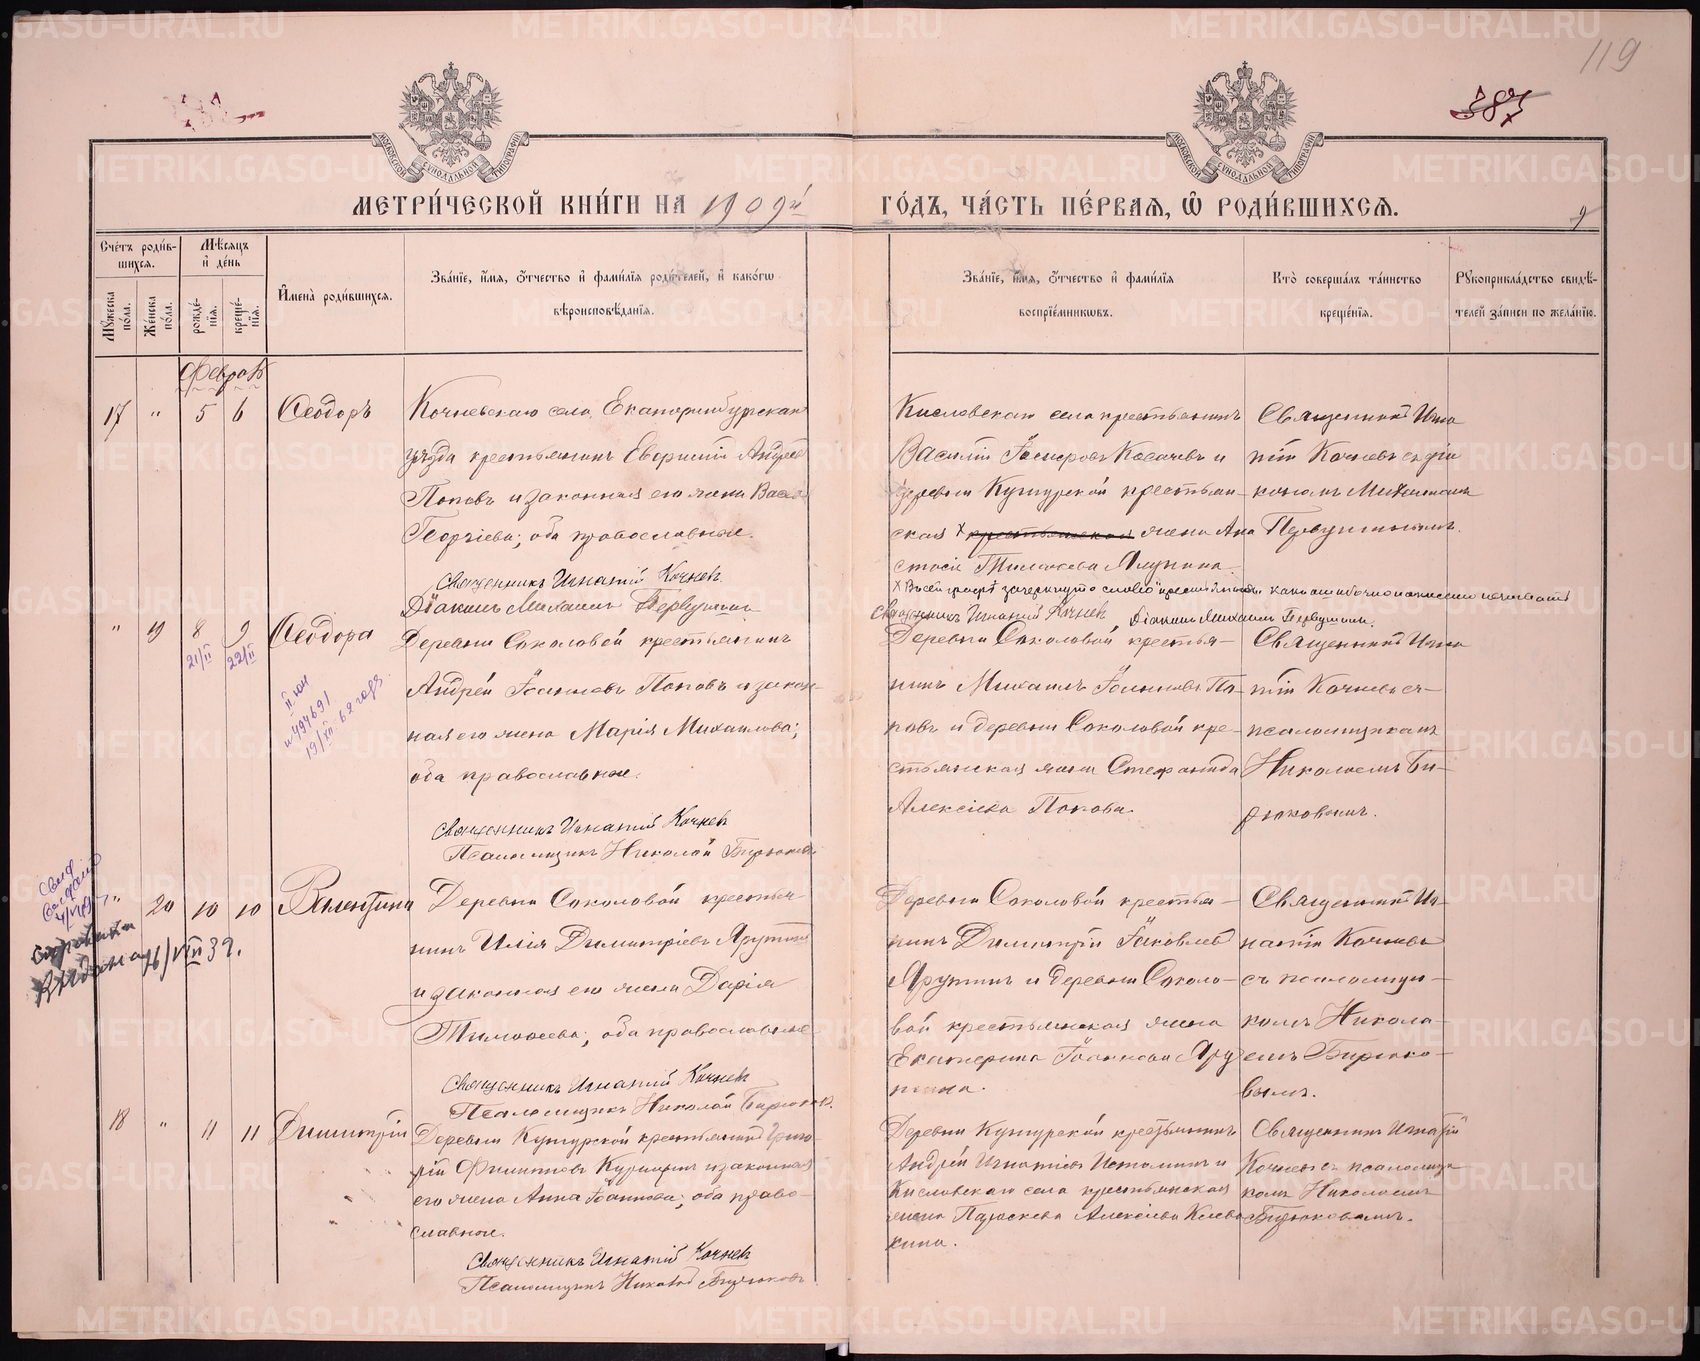 119
387
МЕТРИ́ЧЕСКОЙ КНИ́ГИ НА 1909й ГО́ДЪ, ЧА́СТЬ ПЕ́РВАЯ, Ѡ РОДИ́ВШИХСЯ.
9
Сче́тъ роди́в-
шихся.
Мѣ́сяцъ
и҆ де́нь
Мꙋ́жеска
по́ла.
Же́нска
по́ла.
рожде́-
нїя.
креще́-
нїя.
И҆мена̀ роди́вшихся.
Зва́нїе, и҆́мя, ѻ҆́тчество и҆ фами́лїя роди́телей, и҆ како́гѡ
вѣроисповѣ́данїя.
Зва́нїе, и҆́мя, ѻ҆́тчество и҆ фами́лїя
воспрїе́мникѡвъ.
Кто̀ соверша́лъ та́инство
креще́нїя.
Рꙋкоприкла́дство свидѣ́-
телей за́писи по жела́нїю.
Февраль
17 " 5 6 Ѳеодоръ
Кочневскаго села, Екатеринбургскаго
уѣзда крестьянинъ Андреевъ
Поповъ и законная его жена Васса
Георгіева; оба православные.
Священникъ Игнатій Кочневъ
Діаконъ Михаилъ Первушинъ
Кисловскаго села крестьянинъ
Василій Косачевъ и
деревни Кунгурской крестьян-
ская х крестьянская жена Ана
стасія
х Въ сей графѣ зачеркнуто слово "крестьянская" какъ ошибочно написанное
Священникъ Игнатій Кочневъ, Діаконъ Михаилъ Первушинъ.
Священникъ Игна
тій Кочневъ съ діа
кономъ Михаиломъ
Первушинымъ.
" 19 8 9 Ѳеодора
21/II 22/II
II-юн
№ 494691
19/XII 62 года
Деревни Соколовой крестьянинъ
Андрей Іоанновъ Поповъ и закон-
ная его жена Марія Михаилова;
оба православные.
Священникъ Игнатій Кочневъ
Псаломщикъ Николай Бирюковъ
Деревни Соколовой крестья-
нинъ Михаилъ Іоанновъ По-
повъ и деревни Соколовой кре-
стьянская жена Стефанида
Алексіева Попова.
Священникъ Игна
тій Кочневъ съ
псаломщикомъ
Николаемъ Би-
рюковымъ.
" 20 10 10 Валентина
справка
выдана /VIII 32.
Деревни Соколовой крестья
нинъ Илія Димитріевъ Ярутинъ
и законная его жена Дарія
Тимоѳеева; оба православные
Священникъ Игнатій Кочневъ
Псаломщикъ Николай Бирюковъ.
Деревни Соколовой крестья-
нинъ Димитрій Іаковлевъ
Ярутинъ и деревни Соколо-
вой крестьянская жена
Екатерина Іоаннова Яру
тина.
Священникъ Иг-
натій Кочневъ
съ псаломщи-
комъ Никола-
емъ Бирюко-
вымъ.
18 " 11 11 Димитрій
Деревни Кунгурской крестьянинъ Григо-
рій Филипповъ и законная
его жена Анна Іоаннова; оба право-
славные.
Священникъ Игнатій Кочневъ
Псаломщикъ Николай Бирюковъ
Деревни Кунгурской крестьянинъ
Андрей Игнатіевъ Истоминъ и
Кисловскаго села крестьянская
жена Параскева Алексіева Клева
кина.
Священникъ Игнатій
Кочневъ съ псаломщи
комъ Николаемъ
Бирюковымъ.